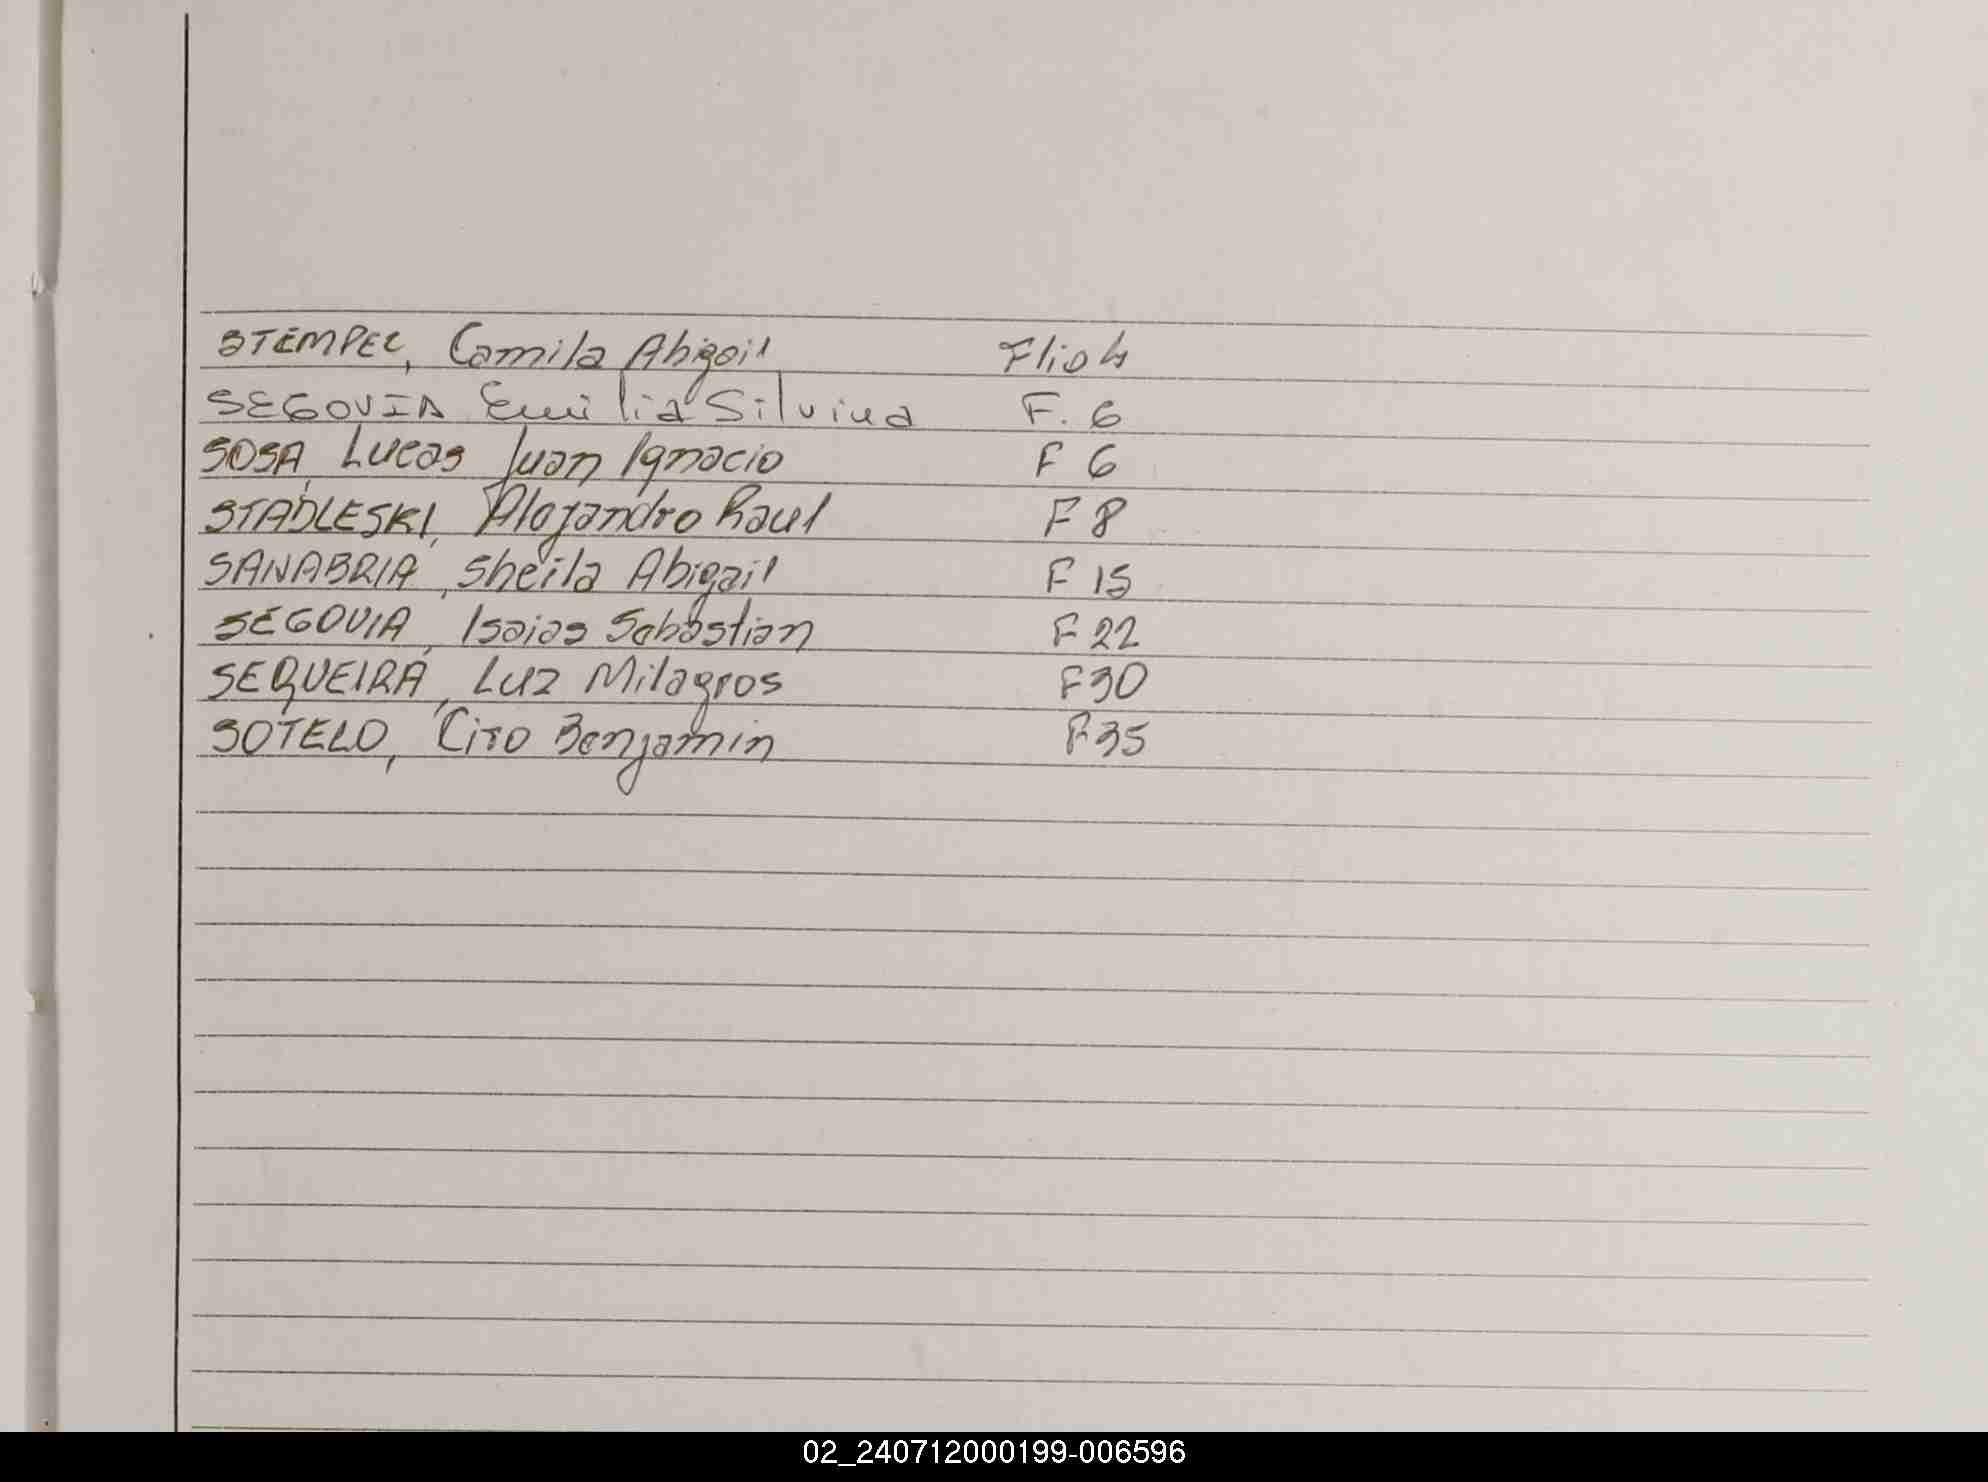 STEMPEL, Camila Abigail Flio 4
SEGOVIA Emilia Silvina F. 6
SOSA, Lucas Juan Ignacio F 6
STADLESKI, Alejandro Raul F 8
SANABRIA, Sheila Abigail F 15
SEGOVIA, Isaias Sebastian F 22
SEQUEIRA, Luz Milagros F 30
SOTELO, Ciro Benjamin F 35
02_240712000199-006596